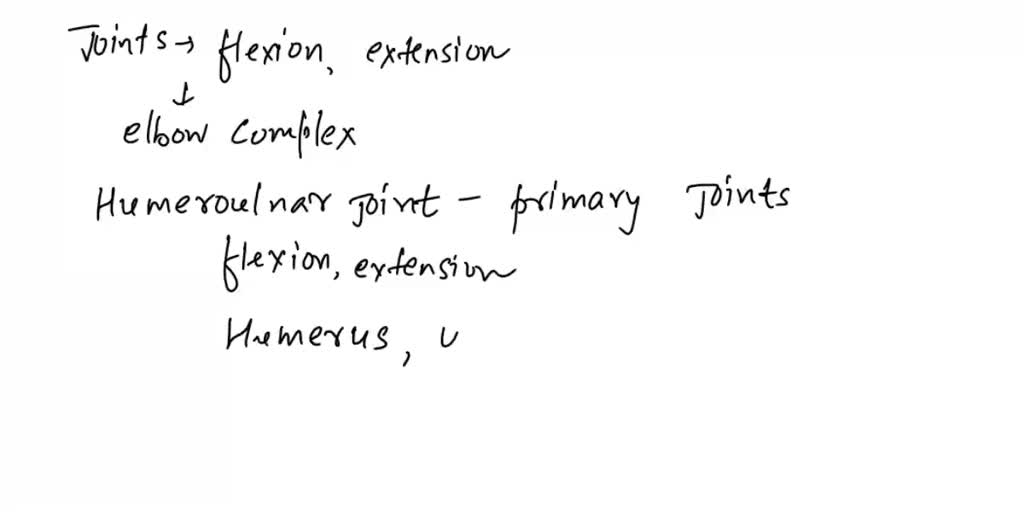 Joints → flexion, extension
↓
elbow complex
Humeroulnar joint - primary Joints
flexion, extension
Humerus, u